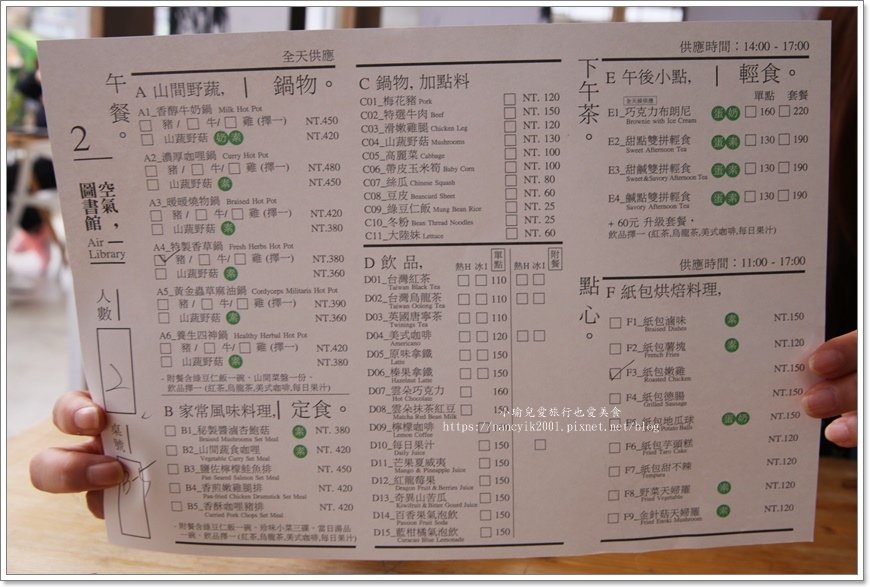 全天供應
午餐。
2
空氣,圖書館
Air Library
人數
2
桌號
A 山間野蔬, 鍋物。
A1_香醇牛奶鍋 Milk Hot Pot
豬/ 牛/ 雞 (擇一) NT.450
山蔬野菇 奶素 NT.420
A2_濃厚咖哩鍋 Curry Hot Pot
豬/ 牛/ 雞 (擇一) NT.480
山蔬野菇 素 NT.450
A3_暖暖燒物鍋 Braised Hot Pot
豬/ 牛/ 雞 (擇一) NT.420
山蔬野菇 素 NT.380
A4_特製香草鍋 Fresh Herbs Hot Pot
豬/ 牛/ 雞 (擇一) NT.380
山蔬野菇 素 NT.360
A5_黃金蟲草麻油鍋 Cordyceps Militaris Hot Pot
豬/ 牛/ 雞 (擇一) NT.390
山蔬野菇 素 NT.360
A6_養生四神鍋 Healthy Herbal Hot Pot
豬/ 牛/ 雞 (擇一) NT.420
山蔬野菇 素 NT.380
·附餐含綠豆仁飯一碗、山間菜盤一份·
飲品擇一 (紅茶,烏龍茶,美式咖啡,每日果汁)
B 家常風味料理, 定食。
B1_秘製醬滷杏鮑菇 素 NT. 380
Braised Mushrooms Set Meal
B2_山間蔬食咖哩 素 NT. 420
Vegetable Curry Set Meal
B3_鹽佐檸檬鮭魚排 NT. 450
Pan Seared Salmon Set Meal
B4_香煎嫩雞腿排 NT. 420
Pan-fried Chicken Drumstick Set Meal
B5_香酥咖哩豬排 NT. 420
Curried Pork Chops Set Meal
·附餐含綠豆仁飯一碗、珍味小菜三碟、當日湯品
一碗、飲品擇一 (紅茶,烏龍茶,美式咖啡,每日果汁)
C 鍋物, 加點料
C01_梅花豬 Pork NT. 120
C02_特選牛肉 Beef NT. 150
C03_滑嫩雞腿 Chicken Leg NT. 130
C04_山蔬野菇 Mushrooms NT. 130
C05_高麗菜 Cabbage NT. 60
C06_帶皮玉米筍 Baby Corn NT. 100
C07_絲瓜 Chinese Squash NT. 80
C08_豆皮 Beancurd Sheet NT. 60
C09_綠豆仁飯 Mung Bean Rice NT. 25
C10_冬粉 Bean Thread Noodles NT. 25
C11_大陸妹 Lettuce NT. 60
D 飲 品, 熱H 冰I 單點 熱H 冰I 附餐
D01_台灣紅茶 110
Taiwan Black Tea
D02_台灣烏龍茶 110
Taiwan Oolong Tea
D03_英國唐寧茶 110
Twinings Tea
D04_美式咖啡 120
Americano
D05_原味拿鐵 150
Latte
D06_榛果拿鐵 150
Hazelnut Latte
D07_雲朵巧克力 160
Hot Chocolate
D08_雲朵抹茶紅豆 160
Matcha Red Bean Milk
D09_檸檬咖啡 150
Lemon Coffee
D10_每日果汁 150
Daily Juice
D11_芒果夏威夷 150
Mango & Pineapple Juice
D12_紅龍莓果 150
Dragon Fruit & Berries Juice
D13_奇異山苦瓜 150
Kiwifruit & Bitter Gourd Juice
D14_百香果氣泡飲 150
Passion Fruit Soda
D15_藍柑橘氣泡飲 150
Curacao Blue Lemonade
供應時間：14:00 - 17:00
下午茶。
E 午後小點, 輕食。
單點 套餐
E1_巧克力布朗尼 蛋奶 160 220
Brownie with Ice Cream
E2_甜點雙拼輕食 蛋素 130 190
Sweet Afternoon Tea
E3_甜鹹雙拼輕食 蛋素 130 190
Sweet&Savory Afternoon Tea
E4_鹹點雙拼輕食 蛋素 130 190
Savory Afternoon Tea
+ 60元 升級套餐,
飲品擇一 (紅茶,烏龍茶,美式咖啡,每日果汁)
供應時間：11:00 - 17:00
點心。
F 紙包烘焙料理,
F1_紙包滷味 素 NT.150
Braised Dishes
F2_紙包薯塊 素 NT.120
French Fries
F3_紙包嫩雞 NT.150
Roasted Chicken
F4_紙包德腸 NT.150
Grilled Sausage
F5_紙包地瓜球 蛋奶 NT.150
Potato Balls
F6_紙包芋頭糕 NT.120
Fried Taro Cake
F7_紙包甜不辣 NT.120
Tempura
F8_野菜天婦羅 素 NT.120
Fried Vegetable
F9_金針菇天婦羅 素 NT.120
Fried Enoki Mushroom
小瑜兒愛旅行也愛美食
https://nancyik2001.pixnet.net/blog